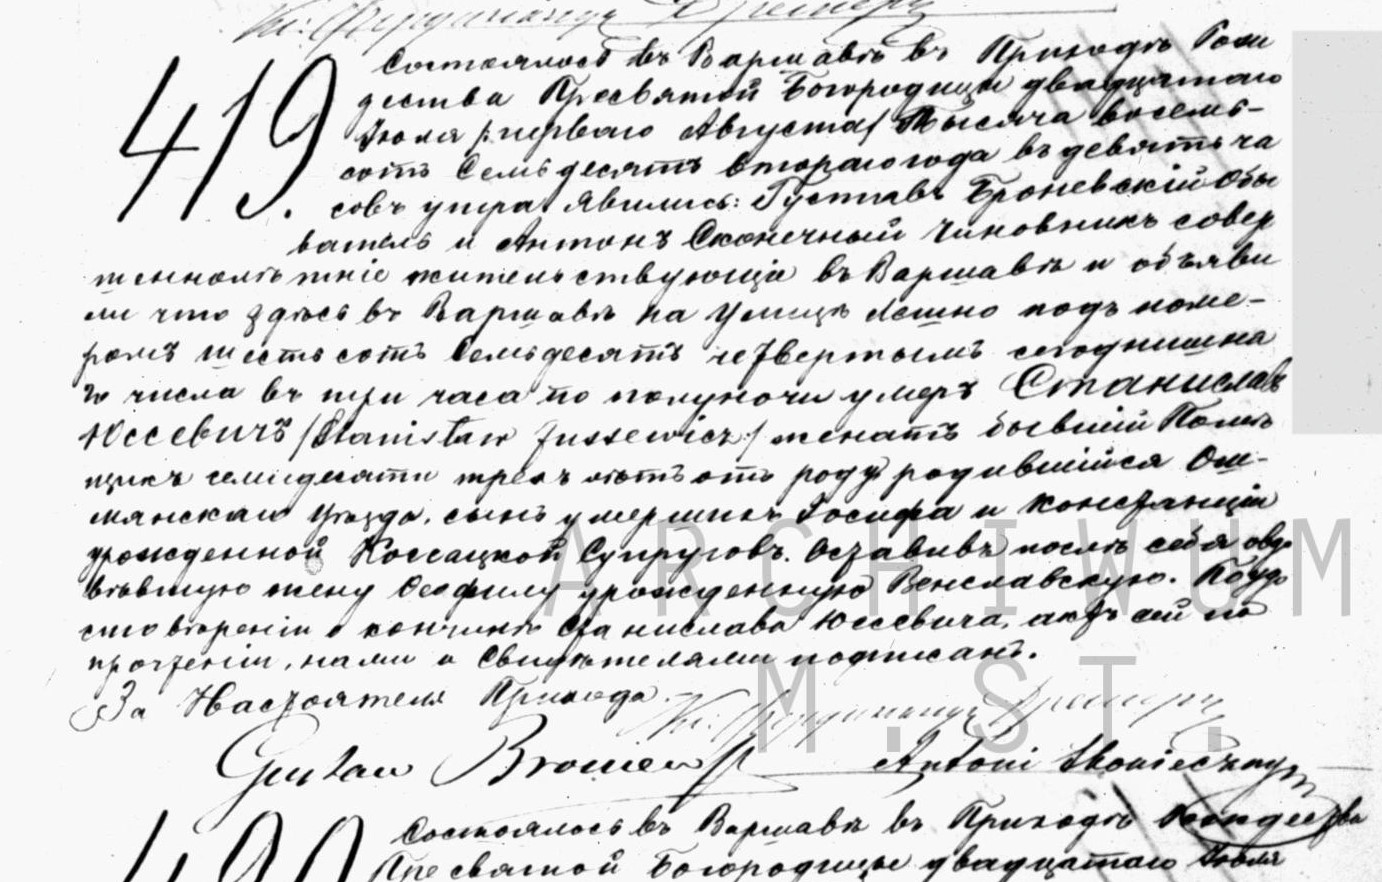 Кс. Фердинанд
419.
Состоялось въ Варшавѣ въ Приходѣ Рож
дества Пресвятой Богородицы двадцатаго
Іюля /: перваго Августа / Тысяча восемь-
сотъ Семьдесятъ втораго года въ девять ча
совъ утра. Явились: Густавъ Броневскій Обы
ватель и Антонъ Сконечный Чиновникъ совер
шеннолѣтніе жительствующіе въ Варшавѣ и объяви
ли что здѣсь въ Варшавѣ на улицѣ Лешно подъ номе-
ромъ шестьсотъ Семьдесятъ четвертымъ сегоднишня
го числа въ три часа по полуночи умеръ Станиславъ
Юссевичъ /Stanisław Jussewicz/ женатъ бывшій Помѣ
щикъ семидесяти трехъ лѣтъ отъ роду родившійся Ош-
мянскаго уѣзда. сынъ умершихъ Іосифа и Констанціи
урожденной Коссацкой Супруговъ. Оставивъ послѣ себя овдо
вѣвшую жену Теофилу урожденную Венславскую. По удо
стовѣреніи о кончинѣ Станислава Юссевича, актъ сей по
прочтеніи, нами и Свидѣтелями подписанъ.
За Настоятеля Прихода.- Кс. Фердинанд
Gustaw Broniewski Antoni Skonieczny
ARCHIWUM
M. ST.
420
Состоялось въ Варшавѣ въ Приходѣ Рождества
Пресвятой Богородицы двадцатаго Іюля